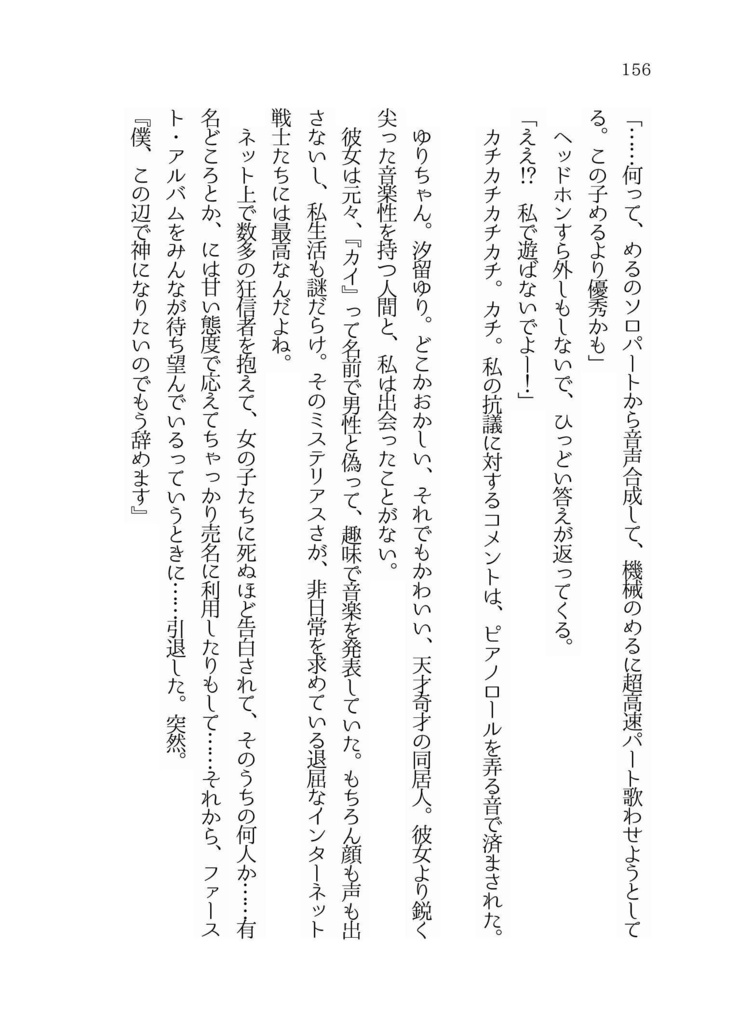 156
「……何って、めるのソロパートから音声合成して、機械のめるに超高速パート歌わせようとして
る。この子めるより優秀かも」
ヘッドホンすら外しもしないで、ひっどい答えが返ってくる。
「ええ!?　私で遊ばないでよー！」
カチカチカチカチ。カチ。私の抗議に対するコメントは、ピアノロールを弄る音で済まされた。
ゆりちゃん。汐留ゆり。どこかおかしい、それでもかわいい、天才奇才の同居人。彼女より鋭く
尖った音楽性を持つ人間と、私は出会ったことがない。
彼女は元々、『カイ』って名前で男性と偽って、趣味で音楽を発表していた。もちろん顔も声も出
さないし、私生活も謎だらけ。そのミステリアスさが、非日常を求めている退屈なインターネット
戦士たちには最高なんだよね。
ネット上で数多の狂信者を抱えて、女の子たちに死ぬほど告白されて、そのうちの何人か……有
名どころとか、には甘い態度で応えてちゃっかり売名に利用したりもして……それから、ファース
ト・アルバムをみんなが待ち望んでいるっていうときに……引退した。突然。
『僕、この辺で神になりたいのでもう辞めます』